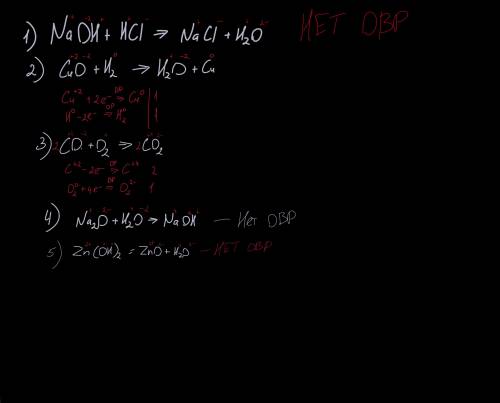 1) NaOH + HCl ⇒ NaCl + H₂O НЕТ ОВР
2) CuO + H₂ → H₂O + Cu
Cu⁺² + 2e⁻ ⇒ Cu⁰ | 1
H⁰ - 2e⁻ = H₂⁰ | 1
3) 2CO + O₂ ⇒ 2CO₂
C⁺² - 2e⁻ → C⁺⁴ 2
O₂⁰ + 4e⁻ = O₂²⁻ 1
4) Na₂O + H₂O → NaOH — Нет ОВР
5) Zn(OH)₂ = ZnO + H₂O — НЕТ ОВР